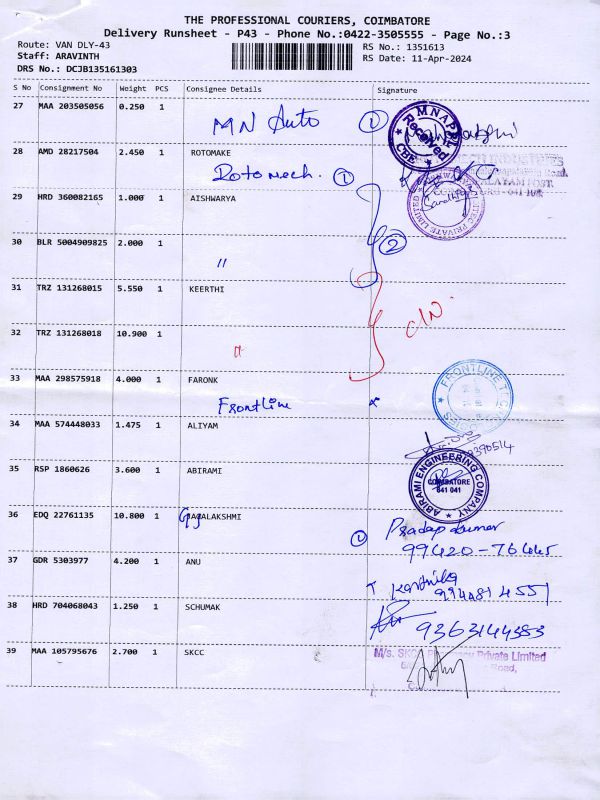 THE PROFESSIONAL COURIERS, COIMBATORE
Delivery Runsheet - P43 - Phone No.:0422-3505555 - Page No.:3
Route: VAN DLY-43 RS No.: 1351613
Staff: ARAVINTH RS Date: 11-Apr-2024
DRS No.: DCJB135161303
S No Consignment No Weight PCS Consignee Details Signature
27 MAA 203505056 0.250 1
MN Auto 1
MNAPPL Received CBE
28 AMD 28217504 2.450 1 ROTOMAKE
Rotomech. 1
29 HRD 360082165 1.000 1 AISHWARYA
PRIVATE LIMITED
30 BLR 5004909825 2.000 1
" 2
31 TRZ 131268015 5.550 1 KEERTHI
32 TRZ 131268018 10.900 1
"
33 MAA 298575918 4.000 1 FARONK
Frontline
FRONTLINE
34 MAA 574448033 1.475 1 ALIYAM
35 RSP 1860626 3.600 1 ABIRAMI
ABIRAMI ENGINEERING COMPANY COIMBATORE 641 041
36 EDQ 22761135 10.800 1 GAJALAKSHMI
1 Pradap kumar
99420-76445
37 GDR 5303977 4.200 1 ANU
Karthika
994481 4551
38 HRD 704068043 1.250 1 SCHUMAK
9363144383
39 MAA 105795676 2.700 1 SKCC
M/s. Private Limited
Road,